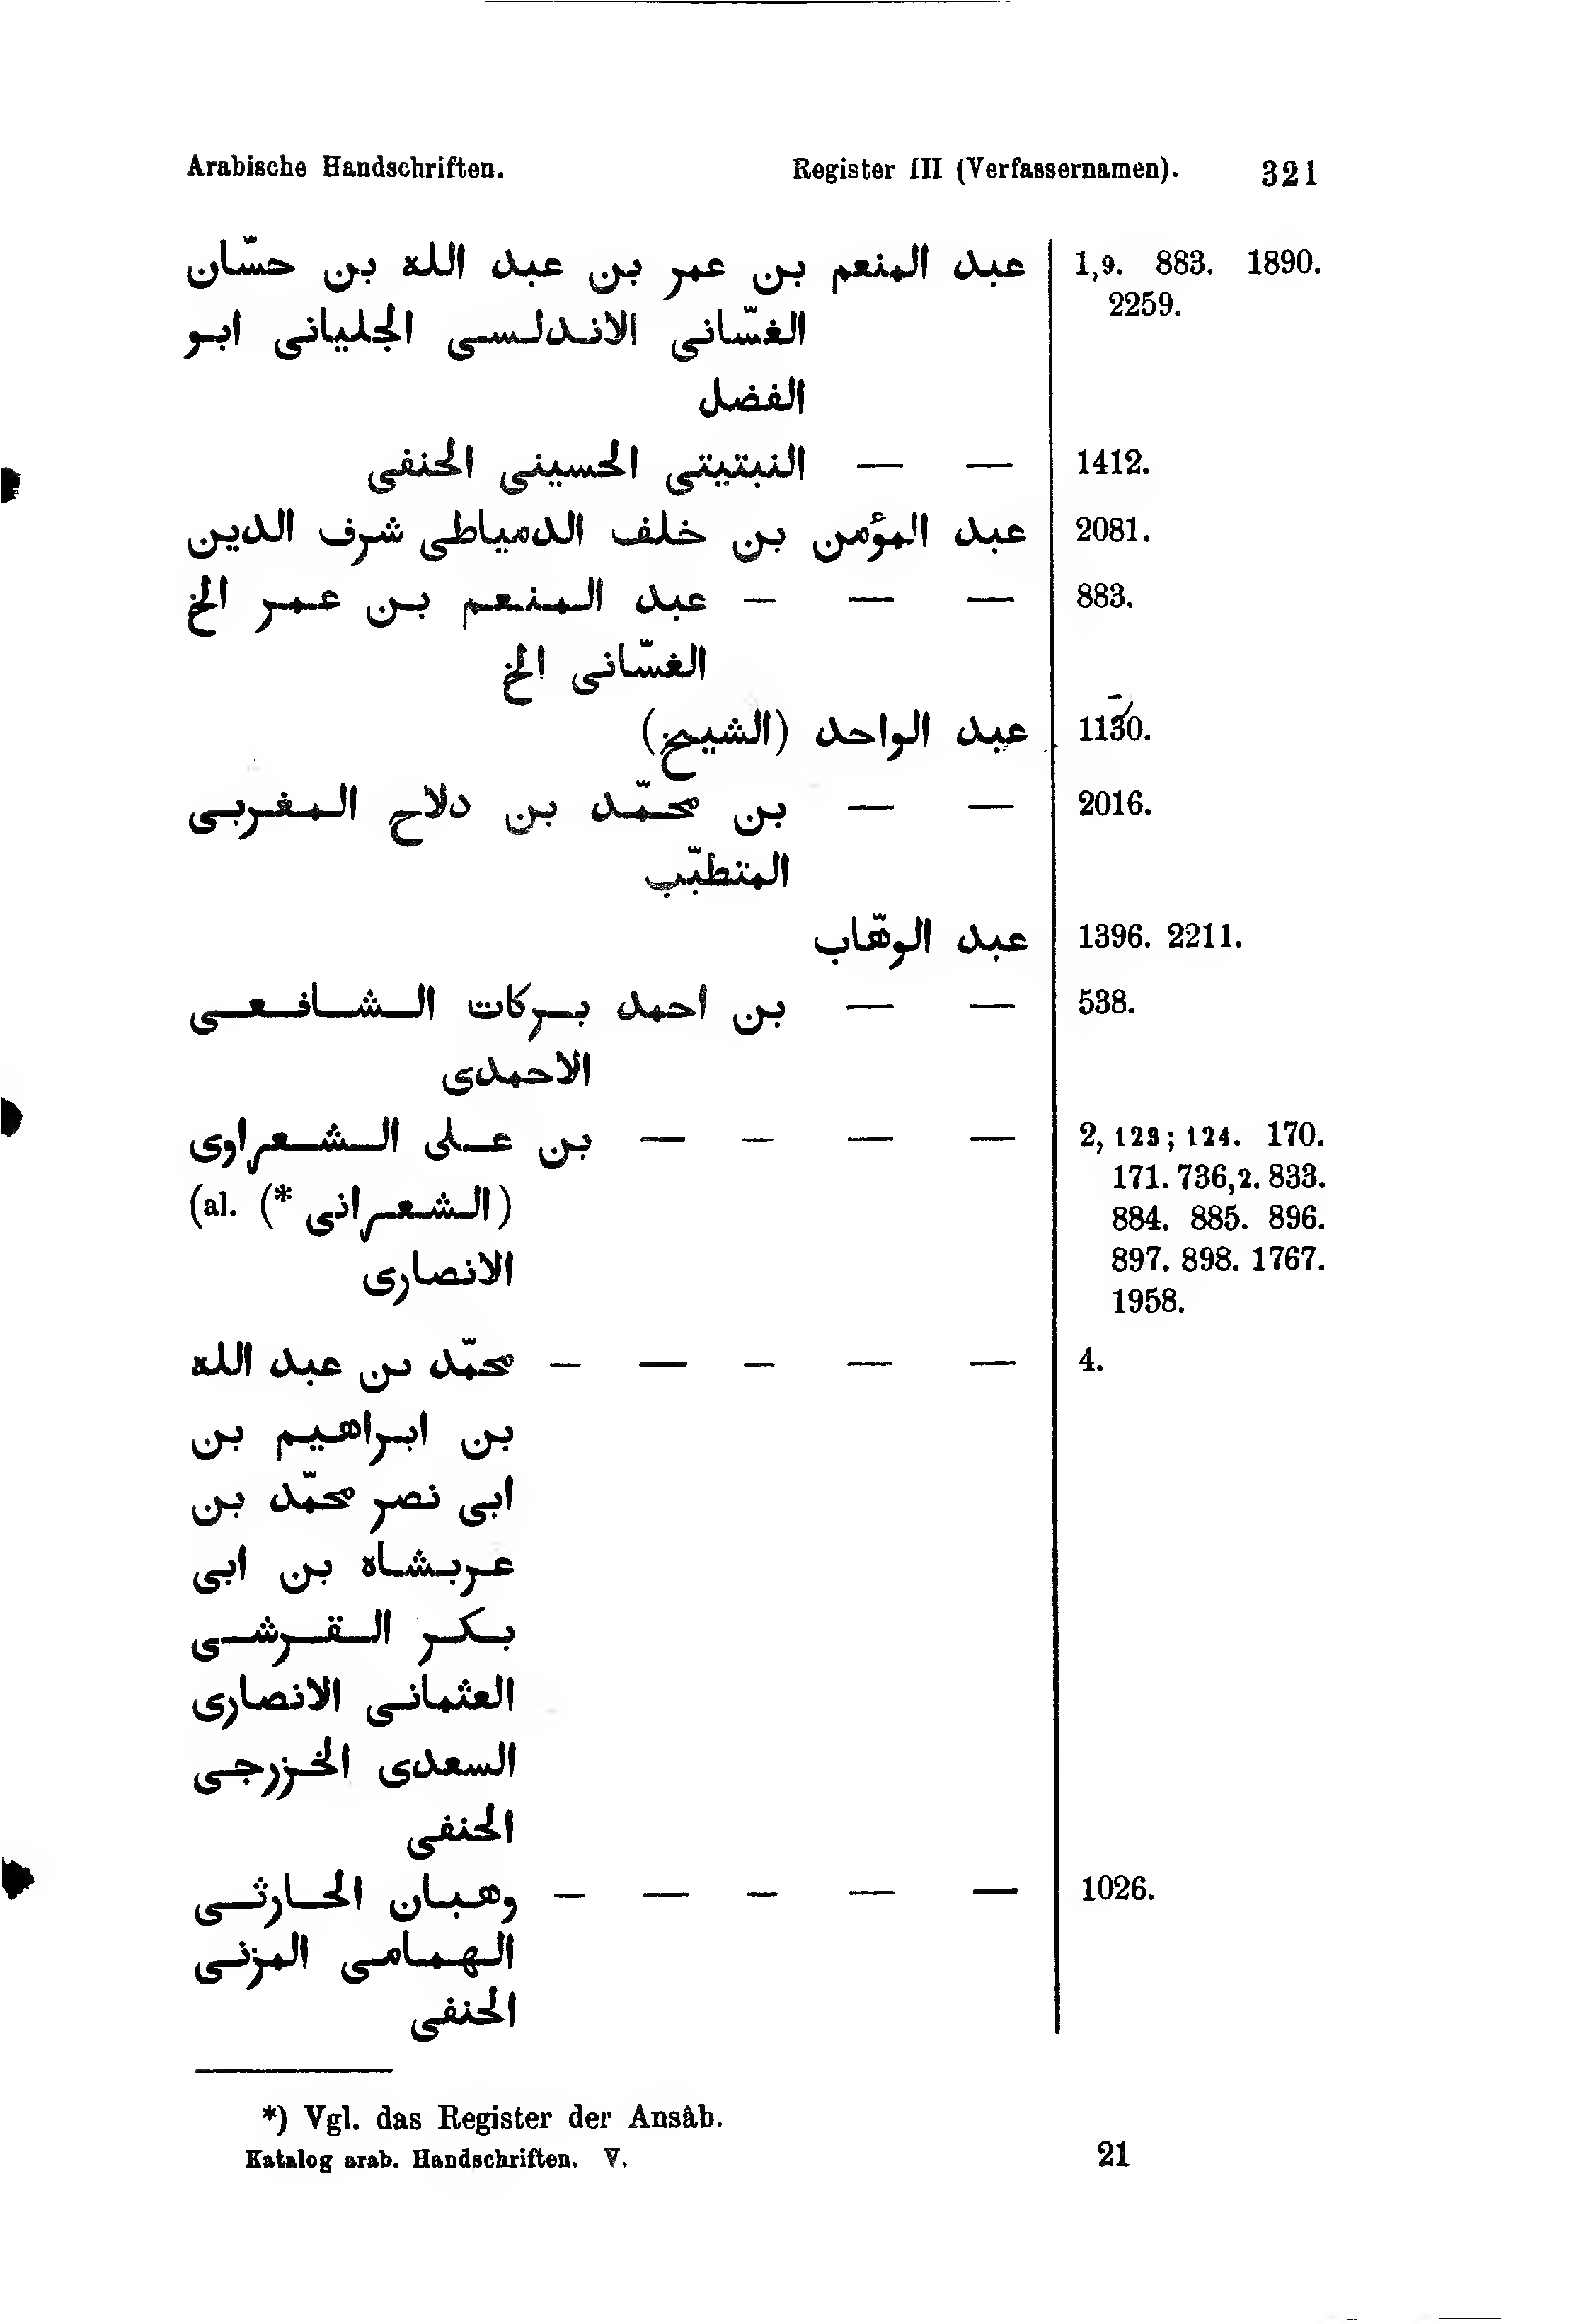 Arabische Handschriften. Register III (Verfassernamen). 321
عبد المنعم بن عمر بن عبد الله بن حسّان 1,9. 883. 1890.
2259.
الغسّانى الاندلسى الجليانى ابو
الفضل
— — النبتيتى الحسينى الحنفى 1412.
عبد المؤمن بن خلف الدمياطى شرف الدين 2081.
— — — عبد المنعم بن عمر الخ 883.
الغسّانى الخ
عبد الواحد (الشيخ) 1130.
— — بن محمّد بن دلاح المغربى 2016.
المتطبّب
عبد الوهّاب 1396. 2211.
— — بن احمد بركات الشافعى 538.
الاحمدى
— — — — بن على الشعراوى 2, 123; 124. 170.
171. 736,2. 833.
(al. (* الشعرانى) 884. 885. 896.
الانصارى 897. 898. 1767.
1958.
— — — — — محمّد بن عبد الله 4.
بن ابراهيم بن
ابى نصر محمّد بن
عربشاه بن ابى
بكر القرشى
العثمانى الانصارى
السعدى الخزرجى
الحنفى
— — — — — وهبان الحارثى 1026.
الهمامى المزنى
الحنفى
*) Vgl. das Register der Ansâb.
Katalog arab. Handschriften. V. 21